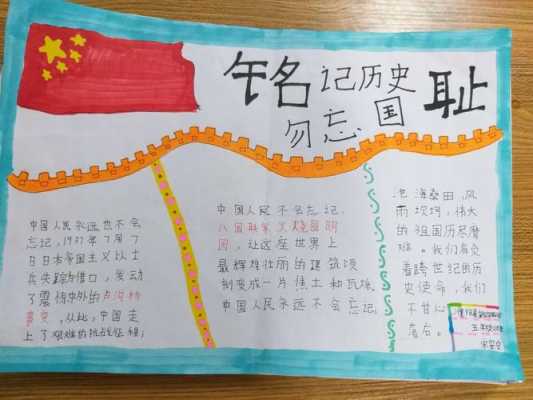 铭记历史
勿忘国耻
中国人民永远也不会
忘记,1937年7月7
日日本帝国主义以士
兵失踪为借口,发动
了震惊中外的卢沟桥
事变,从此,中国走
上了艰难的抗战征程;
中国人民不会忘记,
八国联军火烧圆明
园,让这座世界上
最辉煌壮丽的建筑顷
刻变成一片焦土和瓦埃
中国人民永远不会忘记,
沧海桑田,风
雨坎坷,伟大
的祖国历尽磨
难。我们肩负
着跨世纪的历
史使命,我们
不甘心
落后。